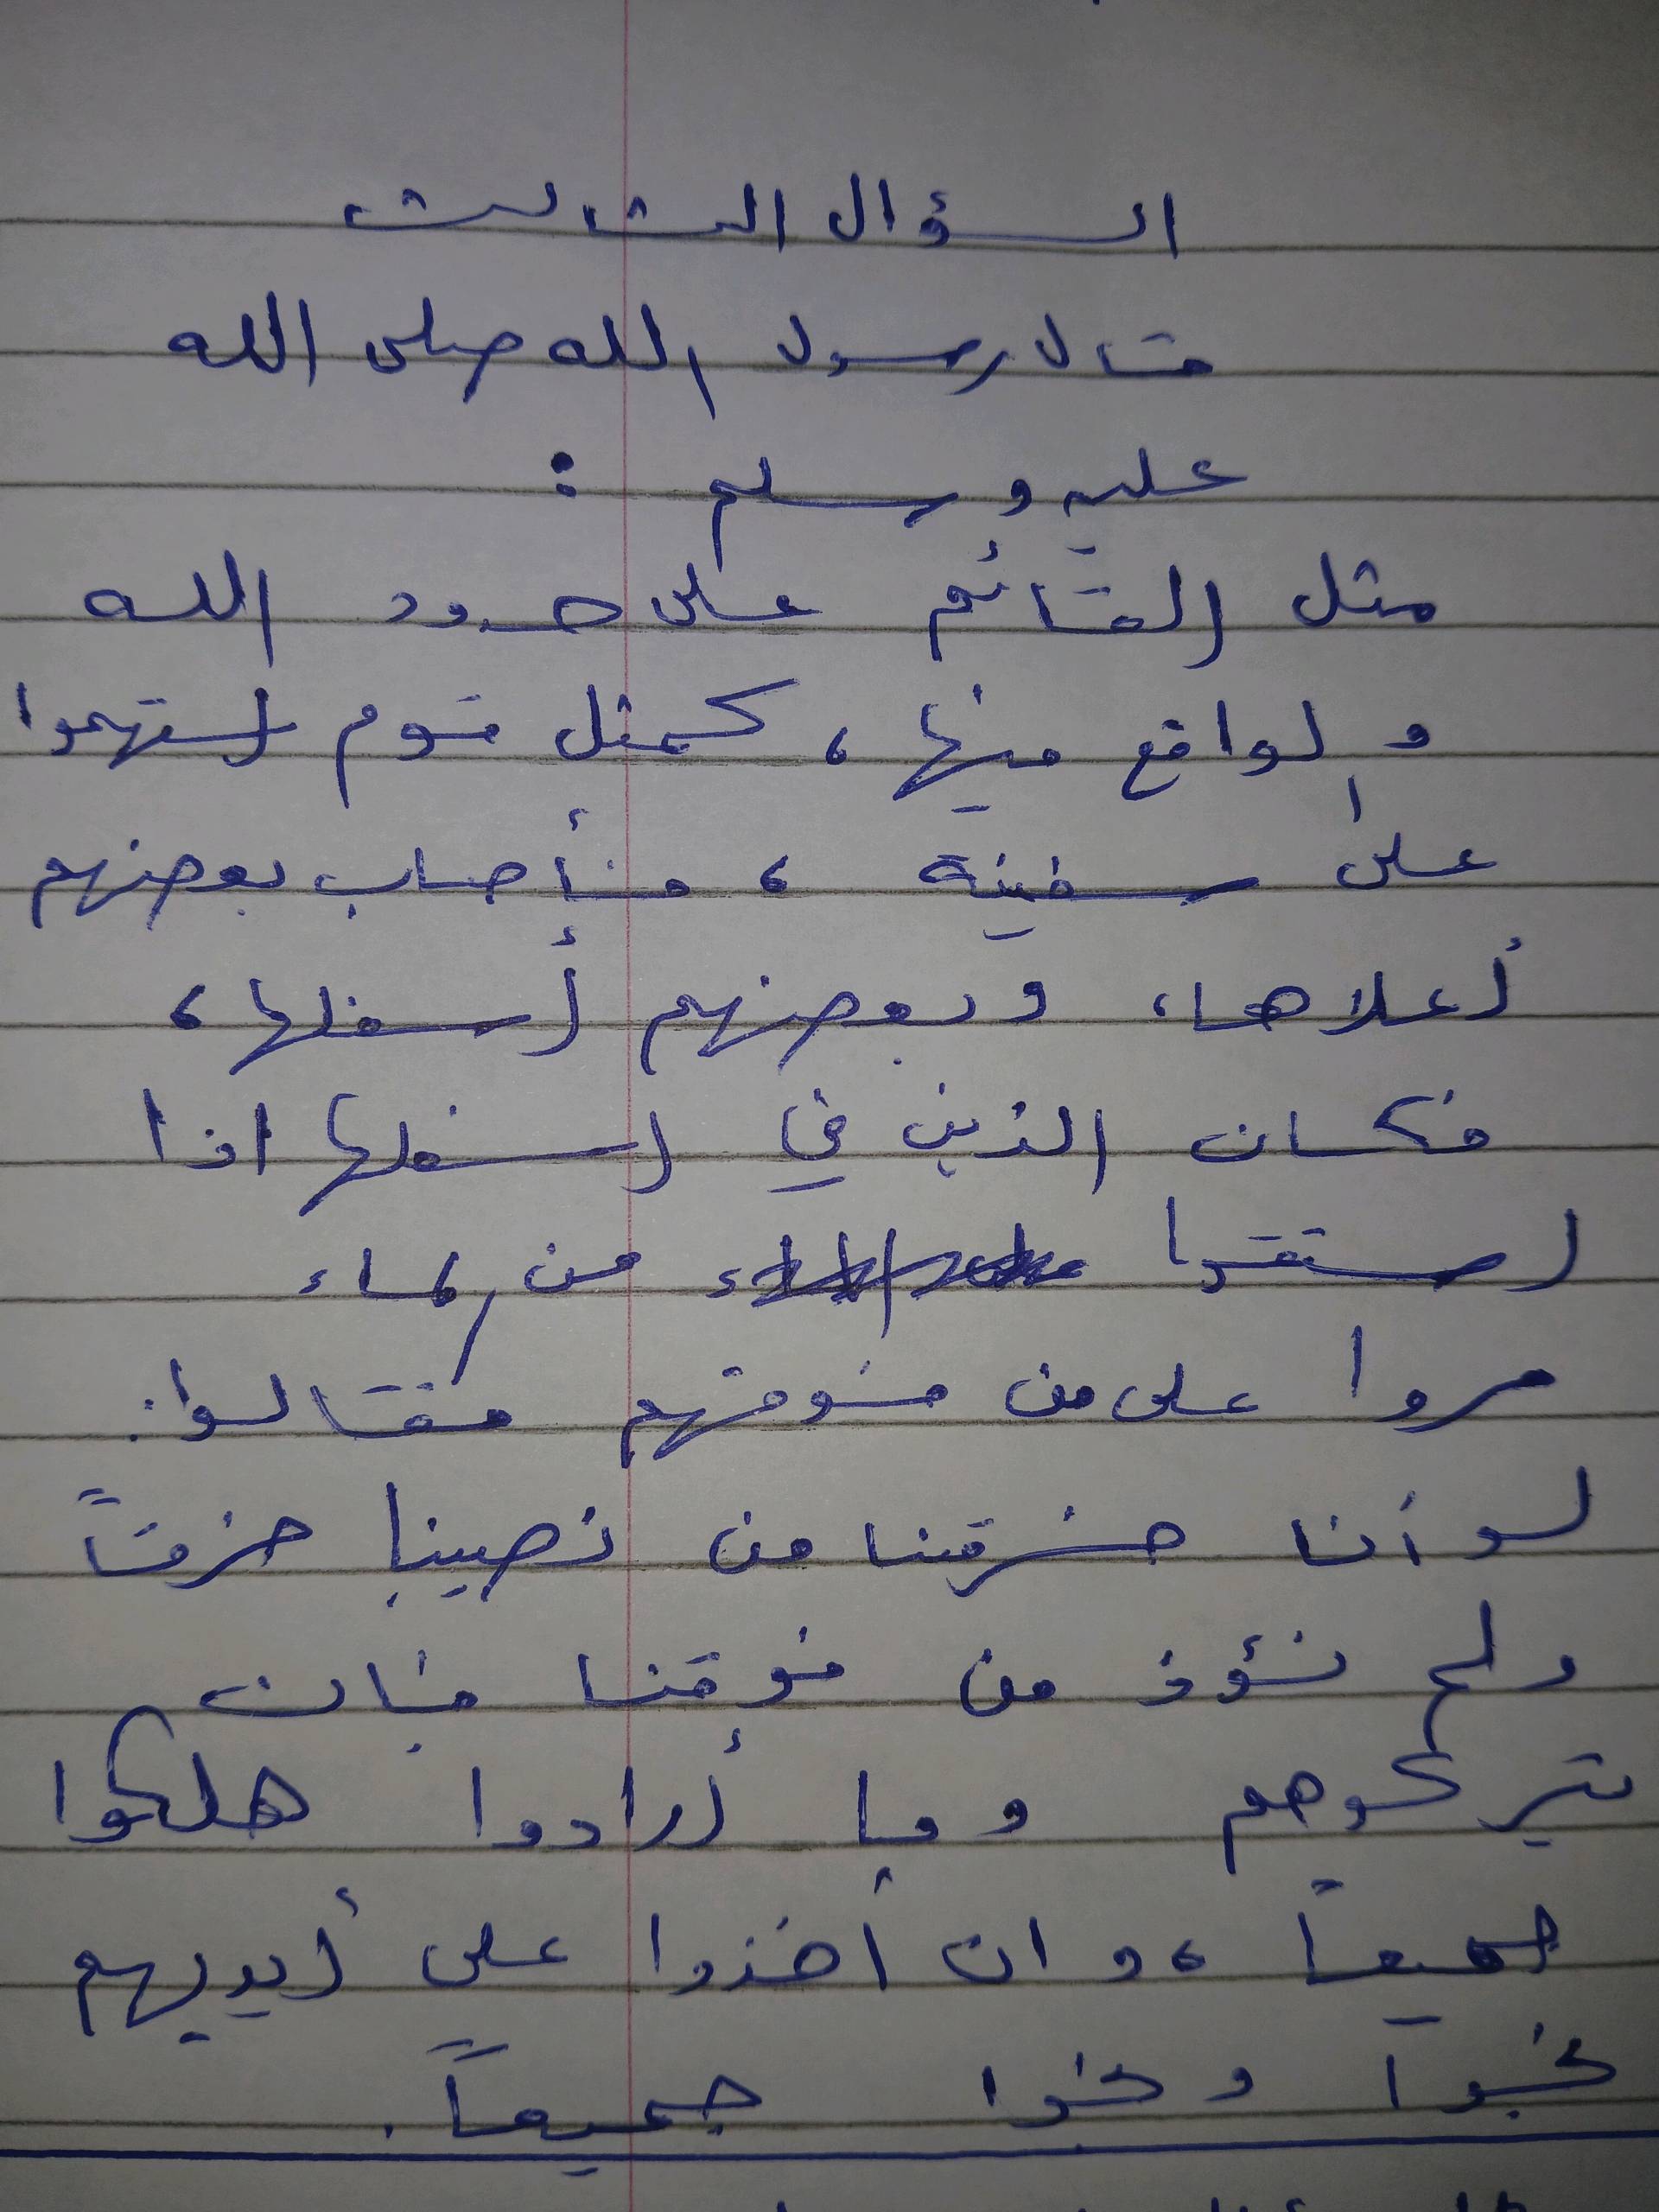 السؤال الثالث
قال رسول الله صلى الله
عليه وسلم :
مثل القائم على حدود الله
والواقع فيها، كمثل قوم استهموا
على سفينة ، فأصاب بعضهم
أعلاها، وبعضهم أسفلها،
فكان الذين في اسفلها اذا
استقوا من الماء
مروا على من فوقهم فقالوا:
لو أنا خرقنا من نصيبنا خرقاً
ولم نؤذ من فوقنا فان
يتركوهم وما أرادوا هلكوا
جميعاً ، وان أخذوا على أيديهم
نجوا ونجوا جميعاً.